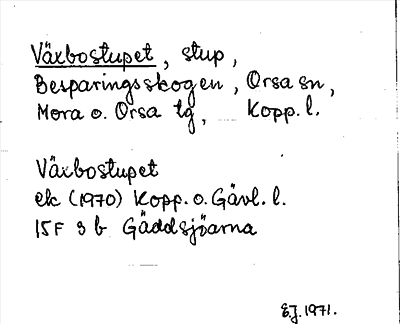 Växbostupet, stup,
Besparingsskogen, Orsa sn,
Mora o. Orsa tg, Kopp. l.
Växbostupet
ek (1970) Kopp. o. Gävl. l.
15F 9b Gäddsjöarna
E.J. 1971.